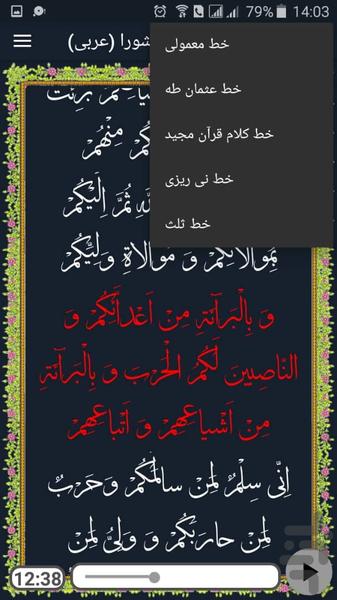 79% 14:03
شورا (عربی)
خط معمولی
خط عثمان طه
خط کلام قرآن مجید
خط نی ریزی
خط ثلث
مِنْهُمْ
ثُمَّ اِلَیْکُمْ
بِمُوالاتِکُمْ وَ مُوالاةِ وَلِیِّکُمْ
وَ بِالْبَرآئَةِ مِنْ اَعْدائِکُمْ وَ
النّاصِبینَ لَکُمُ الْحَرْبَ وَ بِالْبَرآئَةِ
مِنْ اَشْیاعِهِمْ وَ اَتْباعِهِمْ
اِنّی سِلْمٌ لِمَنْ سالَمَکُمْ وَحَرْبٌ
لِمَنْ حارَبَکُمْ وَ وَلِیٌّ لِمَنْ
12:38